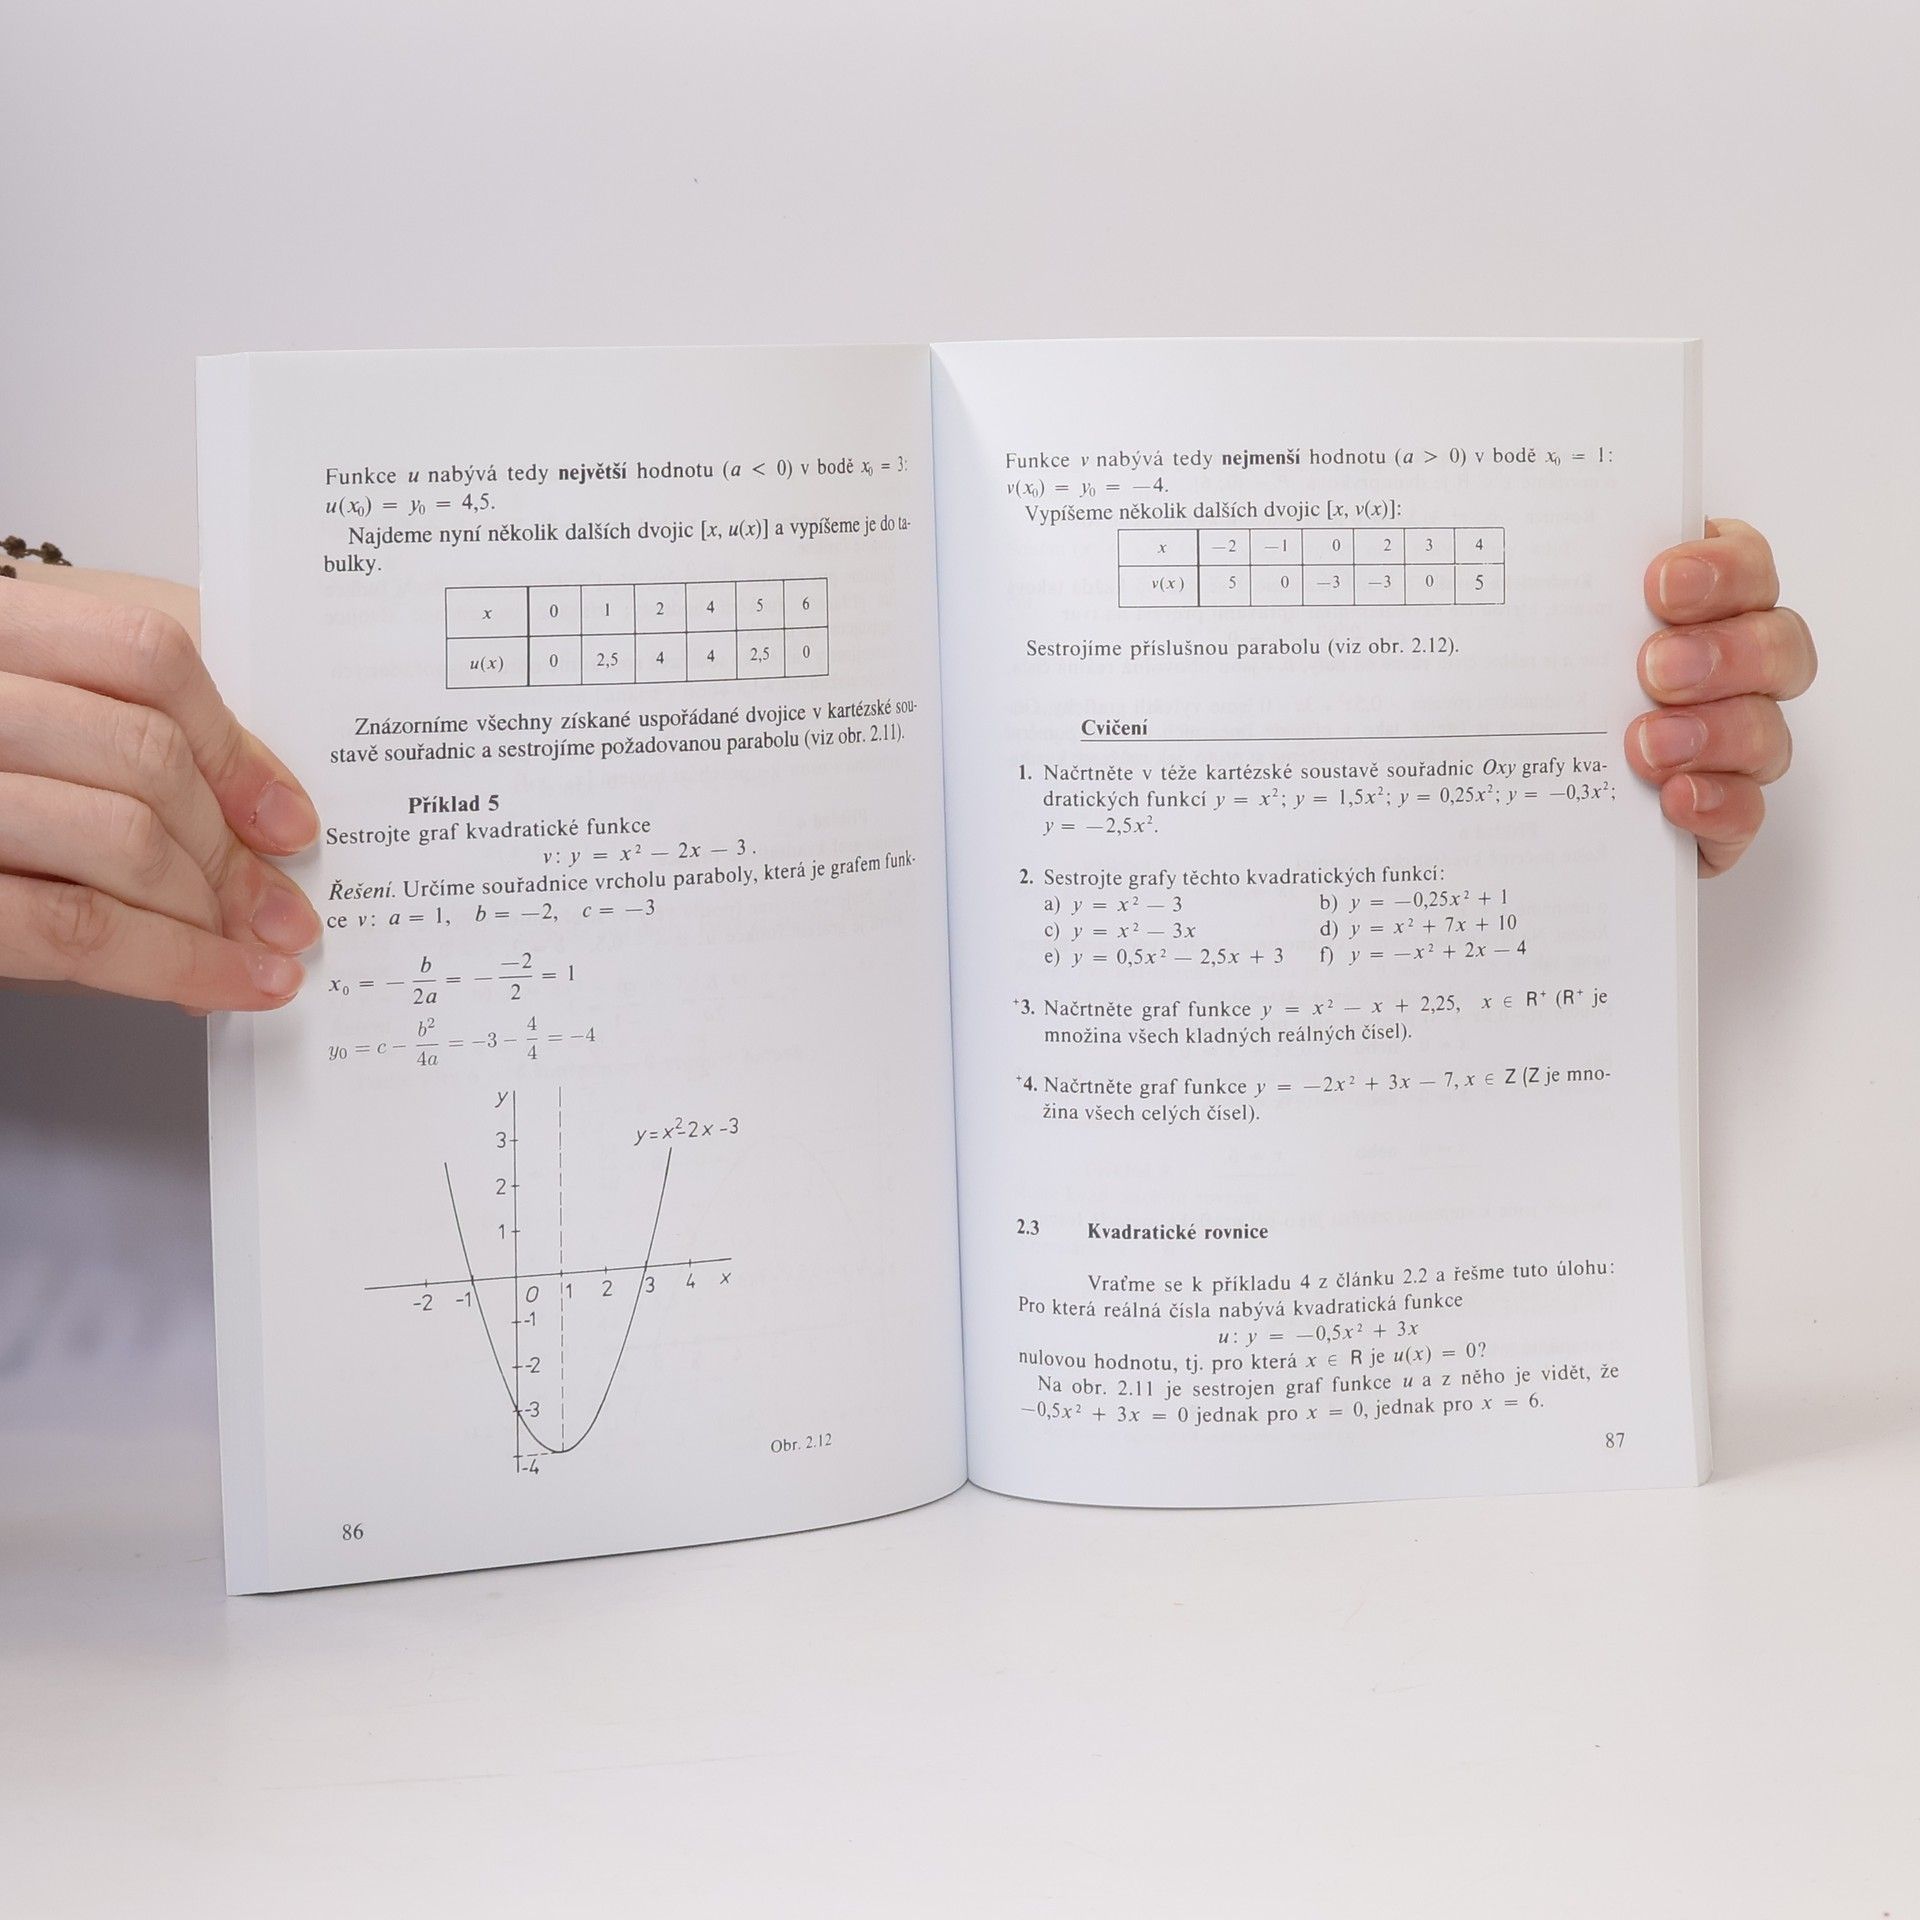 Funkce u nabývá tedy největší hodnotu (a < 0) v bodě x₀ = 3:
u(x₀) = y₀ = 4,5.
Najdeme nyní několik dalších dvojic [x, u(x)] a vypíšeme je do ta-
bulky.
x 0 1 2 4 5 6
u(x) 0 2,5 4 4 2,5 0
Znázorníme všechny získané uspořádané dvojice v kartézské sou-
stavě souřadnic a sestrojíme požadovanou parabolu (viz obr. 2.11).
Příklad 5
Sestrojte graf kvadratické funkce
v: y = x² — 2x — 3.
Řešení. Určíme souřadnice vrcholu paraboly, která je grafem funk-
ce v: a = 1, b = −2, c = −3
x₀ = − b/2a = − −2/2 = 1
y₀ = c − b²/4a = −3 − 4/4 = −4
y
y=x²-2x-3
3
2
1
-2 -1 0 1 2 3 4 x
-1
-2
-3
-4
Obr. 2.12
86
Funkce v nabývá tedy nejmenší hodnotu (a > 0) v bodě x₀ = 1:
v(x₀) = y₀ = −4.
Vypíšeme několik dalších dvojic [x, v(x)]:
x −2 −1 0 2 3 4
v(x) 5 0 −3 −3 0 5
Sestrojíme příslušnou parabolu (viz obr. 2.12).
Cvičení
1. Načrtněte v téže kartézské soustavě souřadnic Oxy grafy kva-
dratických funkcí y = x²; y = 1,5x²; y = 0,25x²; y = −0,3x²;
y = −2,5x².
2. Sestrojte grafy těchto kvadratických funkcí:
a) y = x² — 3 b) y = −0,25x² + 1
c) y = x² — 3x d) y = x² + 7x + 10
e) y = 0,5x² — 2,5x + 3 f) y = −x² + 2x — 4
⁺3. Načrtněte graf funkce y = x² — x + 2,25, x ∈ R⁺ (R⁺ je
množina všech kladných reálných čísel).
⁺4. Načrtněte graf funkce y = −2x² + 3x — 7, x ∈ Z (Z je mno-
žina všech celých čísel).
2.3 Kvadratické rovnice
Vraťme se k příkladu 4 z článku 2.2 a řešme tuto úlohu:
Pro která reálná čísla nabývá kvadratická funkce
u: y = −0,5x² + 3x
nulovou hodnotu, tj. pro která x ∈ R je u(x) = 0?
Na obr. 2.11 je sestrojen graf funkce u a z něho je vidět, že
−0,5x² + 3x = 0 jednak pro x = 0, jednak pro x = 6.
87